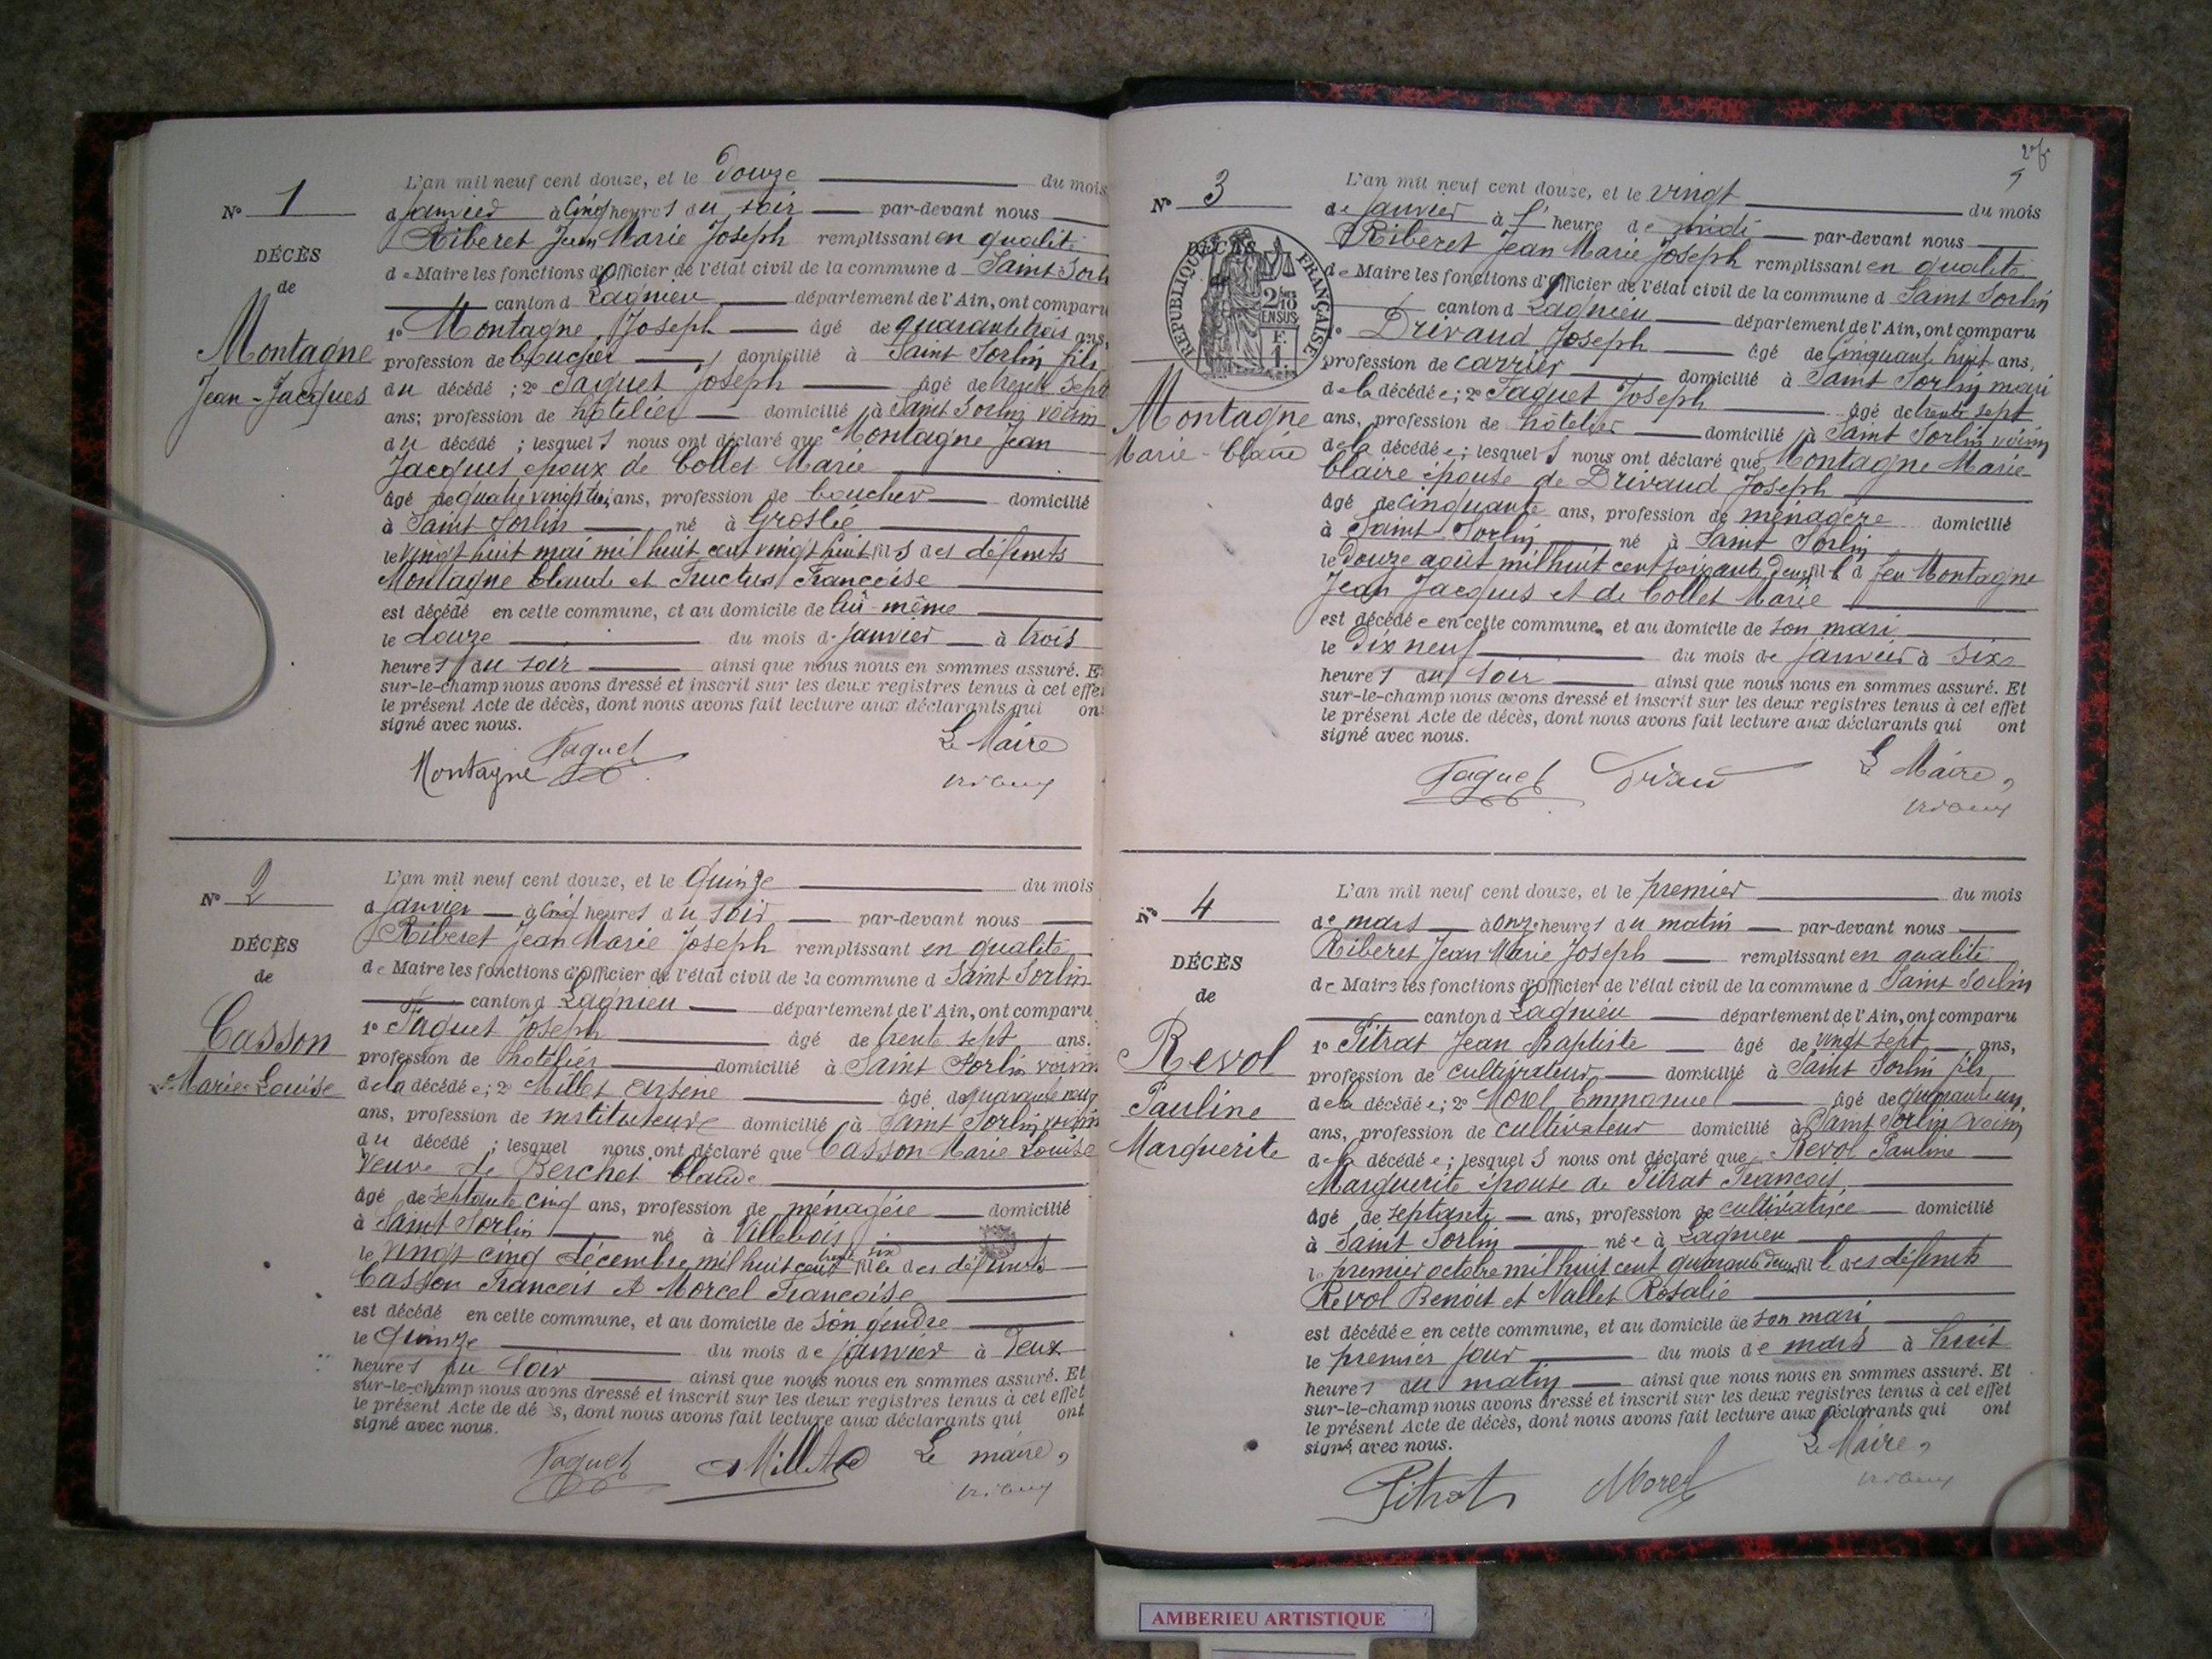 L'an mil neuf cent douze, et le Douze du mois
d janvier à cinq heures du soir par-devant nous
Riberet Jean Marie Joseph remplissant en qualité
de Maire les fonctions d'Officier de l'état civil de la commune d Saint Sorli
canton d Lagnieu département de l'Ain, ont comparu
1º Montagne Joseph âgé de quarante trois ans,
profession de boucher, domicilié à Saint Sorlin fils
du décédé ; 2º Faquet Joseph âgé de trente sept
ans; profession de hôtelier domicilié à Saint Sorlin voisin
du décédé ; lesquels nous ont déclaré que Montagne Jean
Jacques époux de Collet Marie
âgé de quatre vingt trois ans, profession de boucher domicilié
à Saint Sorlin né à Groslée
le vingt huit mai mil huit cent vingt huit fils des défunts
Montagne Claude et Fructus Françoise
est décédé en cette commune, et au domicile de lui-même
le douze du mois de janvier à trois
heures du soir ainsi que nous nous en sommes assuré. E
sur-le-champ nous avons dressé et inscrit sur les deux registres tenus à cet effe
le présent Acte de décès, dont nous avons fait lecture aux déclarants qui on
signé avec nous.
Montagne Faquet Le Maire
Nº 1
DÉCÈS
de
Montagne
Jean-Jacques
Nº 2
DÉCÈS
de
Casson
Marie-Louise
L'an mil neuf cent douze, et le Quinze du mois
d janvier à cinq heures du soir par-devant nous
Riberet Jean Marie Joseph remplissant en qualité
de Maire les fonctions d'Officier de l'état civil de la commune d Saint Sorlin
canton d Lagnieu département de l'Ain, ont comparu
1º Faquet Joseph âgé de trente sept ans.
profession de hôtelier domicilié à Saint Sorlin voisin
de la décédée ; 2º Millet Arsène âgé de quarante neuf
ans, profession de instituteur domicilié à Saint Sorlin voisin
du décédé ; lesquel nous ont déclaré que Casson Marie Louise
Veuve de Berchet Claude
âgé de septante cinq ans, profession de ménagère domicilié
à Saint Sorlin né à Villebois
le vingt cinq décembre mil huit cent trente six fille des défunts
Casson François et Morcel Françoise
est décédé en cette commune, et au domicile de son gendre
le Quinze du mois de janvier à Deux
heures du soir ainsi que nous nous en sommes assuré. Et
sur-le-champ nous avons dressé et inscrit sur les deux registres tenus à cet effet
le présent Acte de dé s, dont nous avons fait lecture aux déclarants qui ont
signé avec nous.
Faquet Millet Le maire,
Nº 3
RÉPUBLIQUE FRANÇAISE
2/10 EN SUS
F. 1.
DÉCÈS
Montagne
Marie-Claire
L'an mil neuf cent douze, et le vingt du mois
de janvier à l' heure de midi par-devant nous
Riberet Jean Marie Joseph remplissant en qualité
de Maire les fonctions d'Officier de l'état civil de la commune d Saint Sorlin
canton d Lagnieu département de l'Ain, ont comparu
1º Drivaud Joseph âgé de cinquante huit ans,
profession de carrier domicilié à Saint Sorlin mari
de la décédée ; 2º Faquet Joseph âgé de trente sept
ans, profession de hôtelier domicilié à Saint Sorlin voisin
de la décédée ; lesquels nous ont déclaré que Montagne Marie
Claire épouse de Drivaud Joseph
âgé de cinquante ans, profession de ménagère domicilié
à Saint Sorlin né à Saint Sorlin
le Douze août mil huit cent soixante deux fille d feu Montagne
Jean Jacques et de Collet Marie
est décédée en cette commune, et au domicile de son mari
le Dix neuf du mois de janvier à six
heures du soir ainsi que nous nous en sommes assuré. Et
sur-le-champ nous avons dressé et inscrit sur les deux registres tenus à cet effet
le présent Acte de décès, dont nous avons fait lecture aux déclarants qui ont
signé avec nous.
Faquet Le Maire,
Nº 4
DÉCÈS
de
Revol
Pauline
Marguerite
L'an mil neuf cent douze, et le premier du mois
de mars à onze heures du matin par-devant nous
Riberet Jean Marie Joseph remplissant en qualité
de Maire les fonctions d'Officier de l'état civil de la commune d Saint Sorlin
canton d Lagnieu département de l'Ain, ont comparu
1º Pitrat Jean Baptiste âgé de vingt sept ans,
profession de cultivateur domicilié à Saint Sorlin fils
de la décédée ; 2º Morel Emmanuel âgé de quarante un
ans, profession de cultivateur domicilié à Saint Sorlin voisin
de la décédée ; lesquels nous ont déclaré que Revol Pauline
Marguerite épouse de Pitrat François
âgé de septante ans, profession de cultivatrice domicilié
à Saint Sorlin née à Lagnieu
le premier octobre mil huit cent quarante deux fille des défunts
Revol Benoit et Nallet Rosalie
est décédée en cette commune, et au domicile de son mari
le premier jour du mois de mars à huit
heures du matin ainsi que nous nous en sommes assuré. Et
sur-le-champ nous avons dressé et inscrit sur les deux registres tenus à cet effet
le présent Acte de décès, dont nous avons fait lecture aux déclarants qui ont
signé avec nous.
Pitrat Morel Le Maire,
AMBERIEU ARTISTIQUE